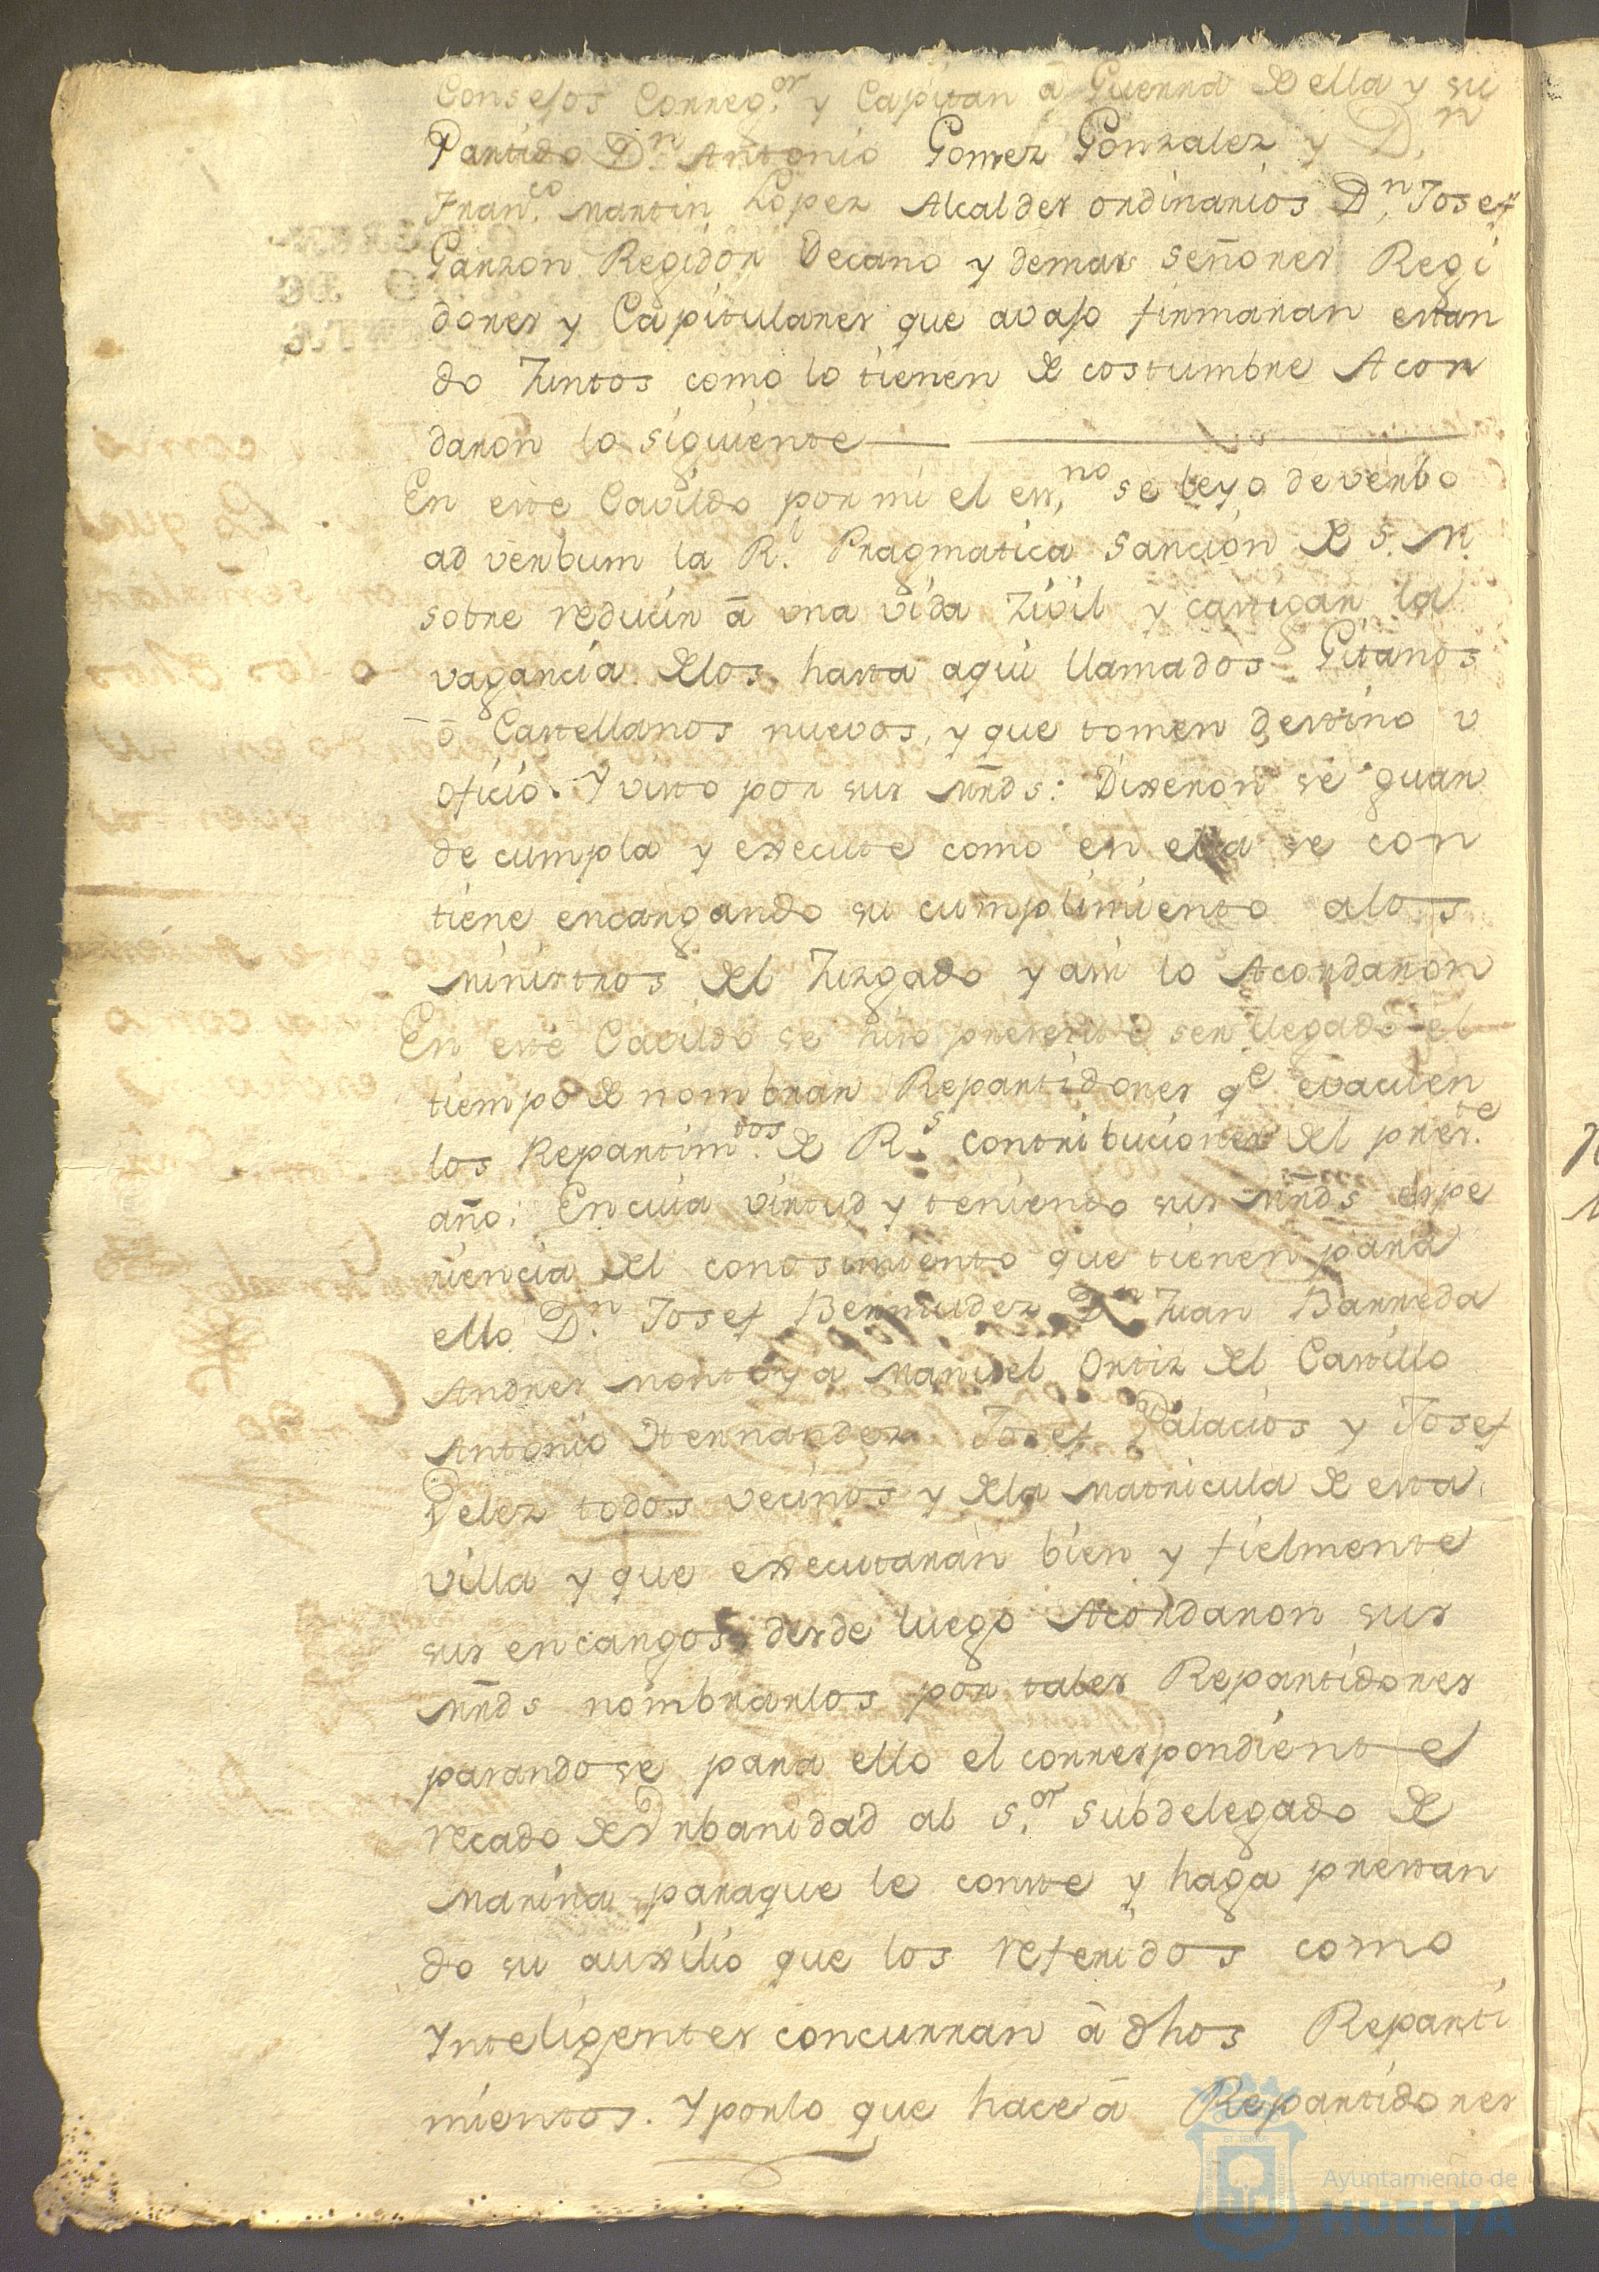 Consejos Correg.or y Capitan â Guerra de ella y su
Partido Dn. Antonio Gomez Gonzalez y Dn.
Fran.co Martin Lopez Alcaldes ordinarios Dn. Josef
Garzon Regidor Decano y demas señores Regi
dores y Capitulares que avajo firmaran estan
do Juntos como lo tienen de costumbre Acor
daron lo siguiente
En este Cavildo por mi el ess.no se leyo de verbo
ad verbum la Rl. Pragmatica Sancion de S. M.
sobre reducir â una vida Zivil y castigar la
vagancia delos hasta aqui llamados Gitanos
ô Castellanos nuevos, y que tomen destino u
oficio. Y visto por sus Mrds: Dixeron se guar
de cumpla y execute como en ella se con
tiene encargando su cumplimiento alos
Ministros del Juzgado y asi lo Acordaron
En este Cavildo se hizo presente ser llegado el
tiempo de nombrar Repartidores qe. evacuen
los Repartim.tos de Rs. contribuciones del pres.te
año: En cuia virtud y teniendo sus Mrds espe
riencia del conosimiento que tienen para
ello Dn. Josef Bermudez Dn Juan Barreda
Andres Montoya Manuel Ortiz del Castillo
Antonio Hernandez Josef Palacios y Josef
Velez todos vecinos y dela Matricula de esta
villa y que executaran bien y fielmente
sus encargos desde luego Acordaron sus
Mrds nombrarlos por tales Repartidores
pasandose para ello el correspondiente
recado de Urbanidad al S.or Subdelegado de
Marina paraque le conste y haga prestan
do su auxilio que los referidos como
Ynteligentes concurran â dhos Reparti
mientos. Y porlo que hace â Repartidores
Ayuntamiento de
HUELVA